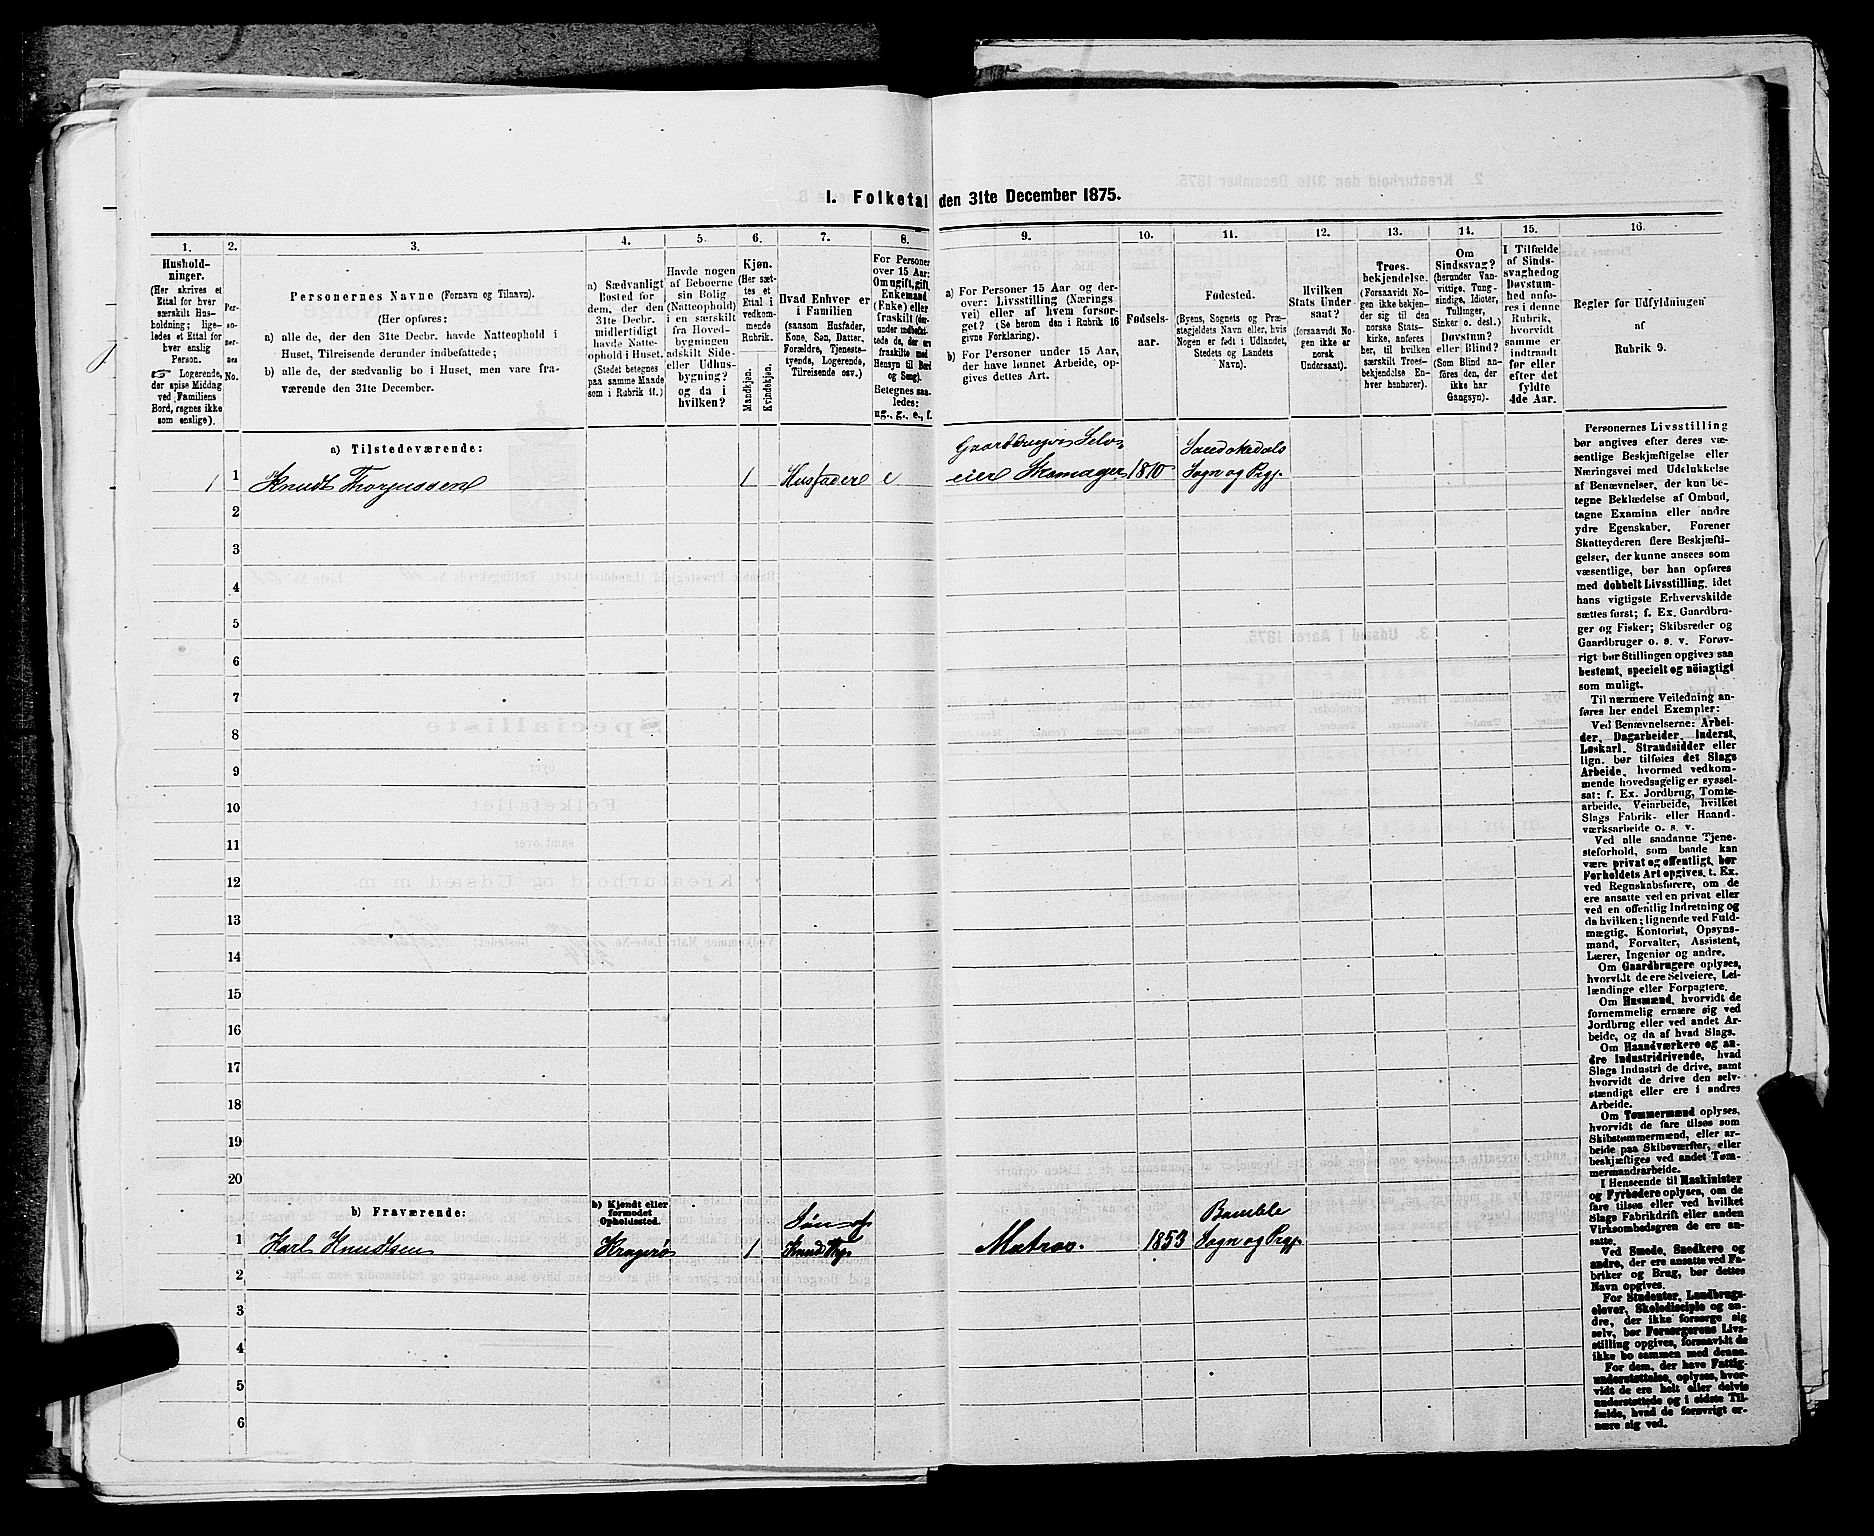 I. Folketal den 31te December 1875.
1.
Hushold-
ninger.
(Her skrives et
Ettal for hver
særskilt Hus-
holdning; lige-
ledes et Ettal for
hver enslig
Person.
☞ Logerende,
der spise Middag
ved Familiens
Bord, regnes ikke
som enslige).
2.
Per-
so-
ner-
nes
No.
3.
Personernes Navne (Fornavn og Tilnavn).
(Her opføres:
a) alle de, der den 31te Decbr. havde Natteophold i
Huset, Tilreisende derunder indbefattede;
b) alle de, der sædvanlig bo i Huset, men vare fra-
værende den 31te December.
4.
a) Sædvanligt
Bosted for
dem, der den
31te Decbr.
midlertidigt
havde Natte-
ophold i Huset.
(Stedet betegnes
paa samme Maade
som i Rubrik 11.)
5.
Havde nogen
af Beboerne
sin Bolig
(Natteophold)
i en særskilt
fra Hoved-
bygningen
adskilt Side-
eller Udhus-
bygning?
og da i
hvilken?
6.
Kjøn.
(Her sæt-
tes et
Ettal i
vedkom-
mende
Rubrik.
Mandkjøn.
Kvindekjøn.
7.
Hvad Enhver er
i Familien
(saasom Husfader,
Kone, Søn, Datter,
Forældre, Tjeneste-
tyende, Logerende,
Tilreisende osv.)
8.
For Personer
over 15 Aar:
Om ugift, gift,
Enkemand
(Enke) eller
fraskilt (der-
under indbefat-
tede de, der ere
fraskilte med
Hensyn til Bord
og Seng).
Betegnes saa-
ledes:
ug., g., e., f.
9.
a) For Personer 15 Aar og der-
over: Livsstilling (Nærings-
vei) eller af hvem forsør-
get? (Se herom den i Rubrik 16
givne Forklaring).
b) For Personer under 15 Aar,
der have lønnet Arbeide, op-
gives dettes Art.
10.
Fødsels-
aar.
11.
Fødested.
(Byens, Sognets og Præ-
stegjeldets Navn eller, hvis
Nogen er født i Udlandet,
Stedets og Landets
Navn).
12.
Hvilken
Stats Under-
saat?
(forsaavidt No-
gen ikke er
norsk
Undersaat).
13.
Troes-
bekjendelse.
(Forsaavidt No-
gen ikke bekjen-
der sig til den
norske Stats-
kirke, anføres
her, til hvilken
særskilt Troes-
bekjendelse En-
hver henhører).
14.
Om
Sindssvag?
(herunder Van-
vittige, Tung-
sindige, Idioter,
Tullinger,
Sinker o. desl.)
Døvstum?
eller Blind?
(Som Blind an-
føres den, der
ikke har
Gangsyn).
15.
I Tilfælde
af Sinds-
svaghed og
Døvstum-
hed anfø-
res i denne
Rubrik,
hvorvidt
samme er
indtraadt
før eller
efter det
fyldte
4de Aar.
16.
Regler for Udfyldningen
af
Rubrik 9.
a) Tilstedeværende:
1 1 Knudt Thorjussen 1 Husfader e Gaardbruger Selv-
eier Skomager 1810 Sandøkedals
Sogn og Prgj.
2
3
4
5
6
7
8
9
10
11
12
13
14
15
16
17
18
19
20
b) Fraværende:
b) Kjendt eller
formodet
Opholdssted.
1 Karl Knudtsen Kragerø 1 Søn af
Knud Thj. Matros. 1853 Bamble
Sogn og Prgj.
2
3
4
5
6
Personernes Livsstilling
bør angives efter deres væ-
sentlige Beskjæftigelse eller
Næringsvei med Udelukkelse
af Benævnelser, der kun be-
tegne Beklædelse af Ombud,
tagne Examina eller andre
ydre Egenskaber. Forener
Skatteyderen flere Beskjæfti-
gelser, der kunne ansees som
væsentlige, bør han opføres
med dobbelt Livsstilling, idet
hans vigtigste Erhvervskilde
sættes først; f. Ex. Gaardbru-
ger og Fisker; Skibsreder og
Gaardbruger o. s. v. Forøv-
rigt bør Stillingen opgives saa
bestemt, specielt og nöiagtigt
som muligt.
Til nærmere Veiledning an-
føres her endel Exempler:
Ved Benævnelserne: Arbei-
der, Dagarbeider, Inderst,
Løskarl, Strandsidder eller
lign. bør tilføies det Slags
Arbeide, hvormed vedkom-
mende hovedsagelig er syssel-
sat; f. Ex. Jordbrug, Tomte-
arbeide, Veiarbeide, hvilket
Slags Fabrik- eller Haand-
værksarbeide o. s. v.
Ved alle saadanne Tjene-
steforhold, som baade kan
være privat og offentligt, bør
Forholdets Art opgives, t. Ex.
ved Regnskabsførere, om de
ere ansatte ved en privat eller
ved en offentlig Indretning og
da hvilken; lignende ved Fuld-
mægtig, Kontorist, Opsyns-
mand, Forvalter, Assistent,
Lærer, Ingeniør og andre.
Om Gaardbrugere oplyses,
hvorvidt de ere Selveiere, Lei-
lændinge eller Forpagtere.
Om Husmænd, hvorvidt de
fornemmelig ernære sig ved
Jordbrug eller ved andet Ar-
beide, og da af hvad Slags.
Om Haandværkere og an-
dre Industridrivende, hvad
Slags Industri de drive, samt
hvorvidt de drive den selv-
stændigt eller ere i andres
Arbeide.
Om Tømmermænd oplyses,
hvorvidt de fare tilsøs som
Skibstømmermænd, eller ar-
beide paa Skibsværfter, eller
beskjæftiges ved andet Tøm-
mermandsarbeide.
I Henseende til Maskinister
og Fyrbødere oplyses, om de
fare tilsøs eller ved hvilket
Slags Fabrikdrift eller anden
Virksomhedsgren de ere an-
satte.
Ved Smede, Snedkere og
andre, der ere ansatte ved Fa-
briker og Brug, bør dettes
Navn opgives.
For Studenter, Landbrugs-
elever, Skoledisciple og an-
dre, der ikke forsørge sig
selv, bør Forsørgerens Livs-
stilling opgives, forsaavidt de
ikke bo sammen med denne.
For dem, der have Fattig-
understøttelse, oplyses, hvor-
vidt de ere helt eller delvis
understøttede og i sidste Til-
fælde, hvad de forøvrigt er-
nære sig ved.